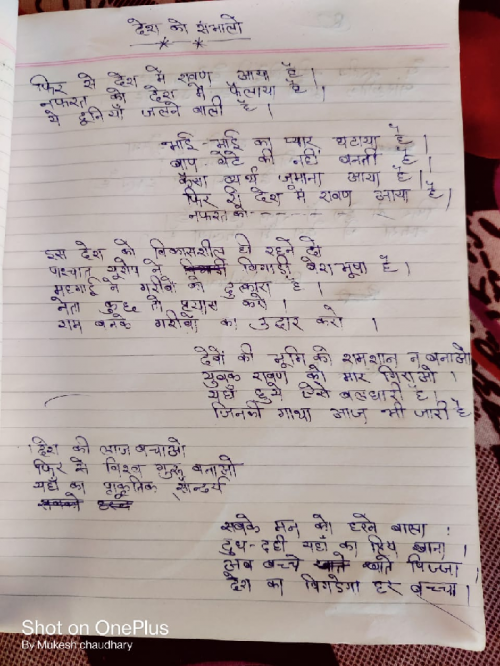 देश को संभालो
फिर से देश में रावण आया है ।
नफरत को देश में फैलाया है ।
ये दुनियाँ जलने वाली है ।
भाई-भाई का प्यार घटाया है ।
बाप-बेटे की नहीं बनती है ।
कैसा ये जमाना आया है ।
फिर से देश में रावण आया है ।
नफरत को
इस देश को विकासशील ही रहने दो
पाश्चात यूरोप ने बिगाड़ी वेश-भूषा है ।
महगाई ने गरीबों को दुत्कारा है ।
नेता कुछ तो प्रयास करो ।
राम बनके गरीबों का उद्दार करो ।
देवों की भूमि को शमशान न बनाओ
युवक रावण को मार गिराओ ।
यहाँ हुये ऐसे बलधारी है ।
जिनकी गाथा आज भी जारी है
देश की लाज बचाओ
फिर से विश्व गुरु बनाओ
यहाँ का प्राकृतिक सौन्दर्य
सबके मन को हरने वाला ।
दुध-दही यहाँ का प्रिय खाना ।
अब बच्चे खाते पिज्जा ।
देश का बिगड़ेगा हर बच्चा ।
Shot on OnePlus
By Mukesh chaudhary